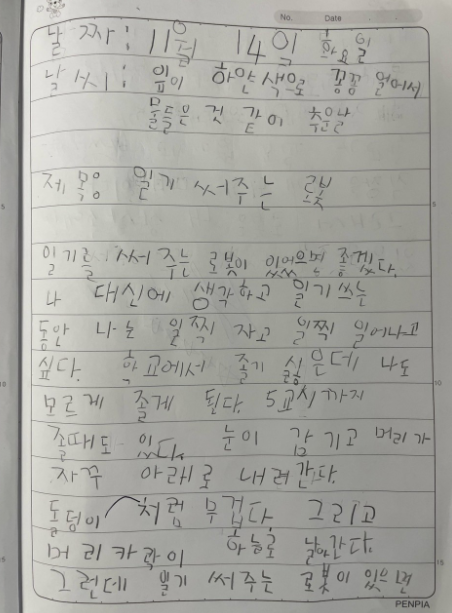 No. Date
날 짜 : 11월 14일 화요일
날 씨 : 잎이 하얀색으로 꽁꽁 얼어서
물들은 것 같이 추운날
제목 일기 써주는 로봇
일기를 써서 주는 로봇이 있었으면 좋겠다.
나 대신에 생각하고 일기 쓰는
동안 나는 일찍 자고 일찍 일어나고
싶다. 학교에서 졸기 싫은데 나도
모르게 졸게 된다. 5교시까지
졸때도 있다. 눈이 감기고 머리가
자꾸 아래로 내려간다.
돌덩이처럼 무겁다. 그리고
머리카락이 하늘로 날아간다.
그런데 일기 써주는 로봇이 있으면
PENPIA